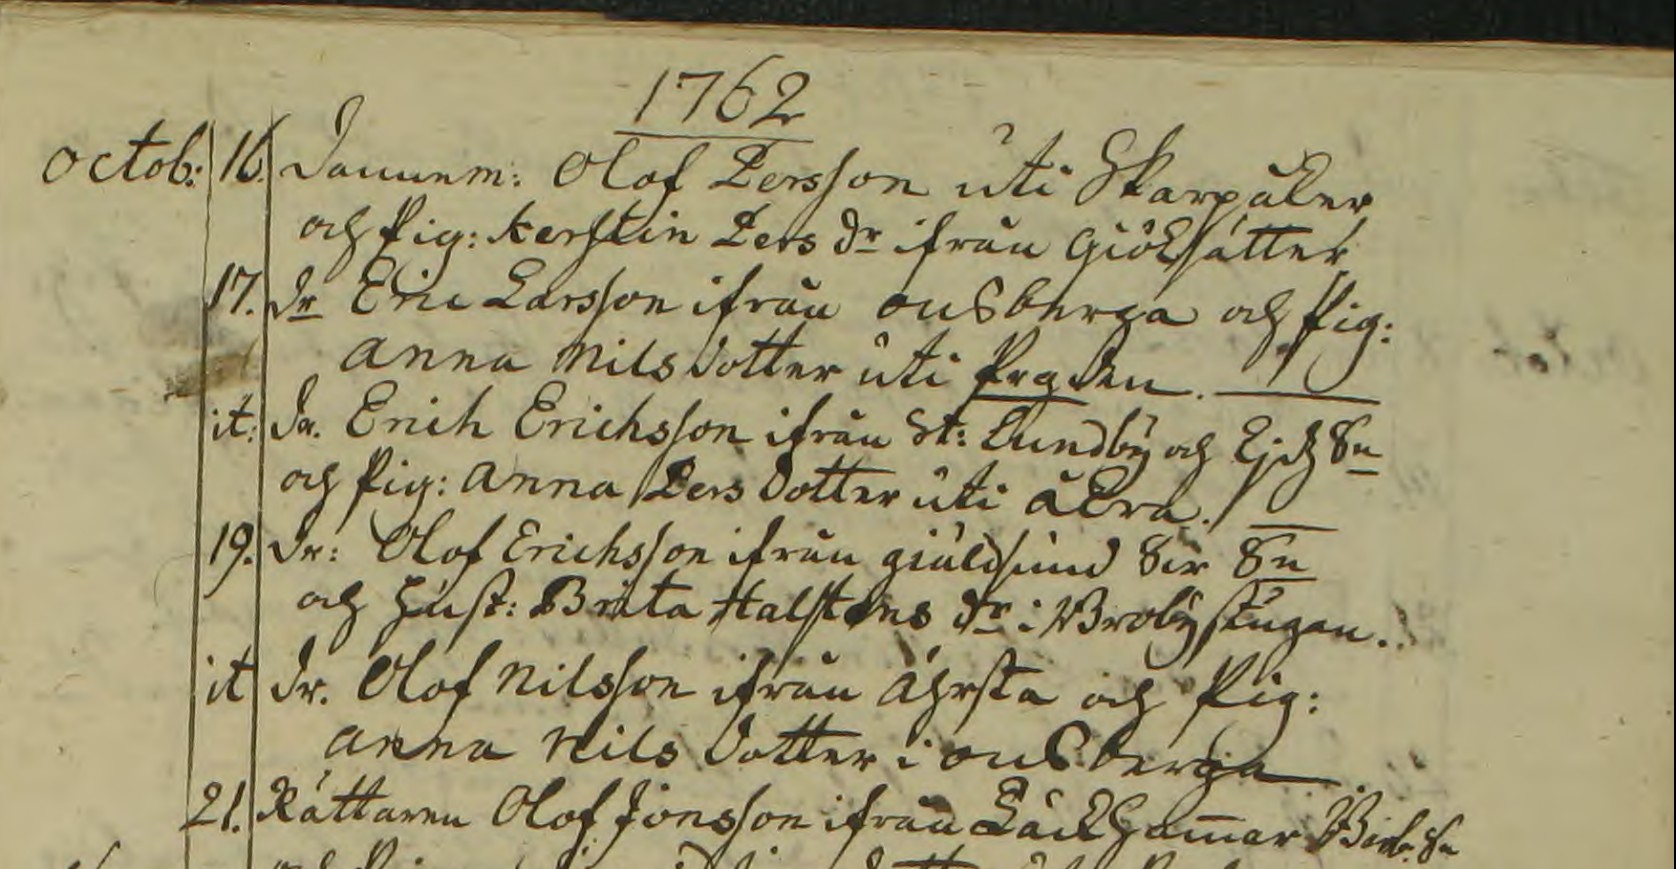 1762
Octob: 16. Dannem: Olof Persson uti Skarpåker
och Pig: Kerstin Pers dr ifrån Giöksätter
17. Dr Eric Larsson ifrån Onsberga och Pig:
Anna Nils dotter uti Prgden.
it: Dr. Erich Erichsson ifrån St: Lundby och Sn
och Pig: Anna Pers dotter uti Åkra.
19. Dr: Olof Erichsson ifrån giäldsund Sn
och Hust: Brita Halstens dr i Brobystugan.
it Dr. Olof Nilsson ifrån Åhrsta och Pig:
Anna Nils dotter i Onsberga
21. Rättaren Olof Jonsson ifrån Läckhamar Sn